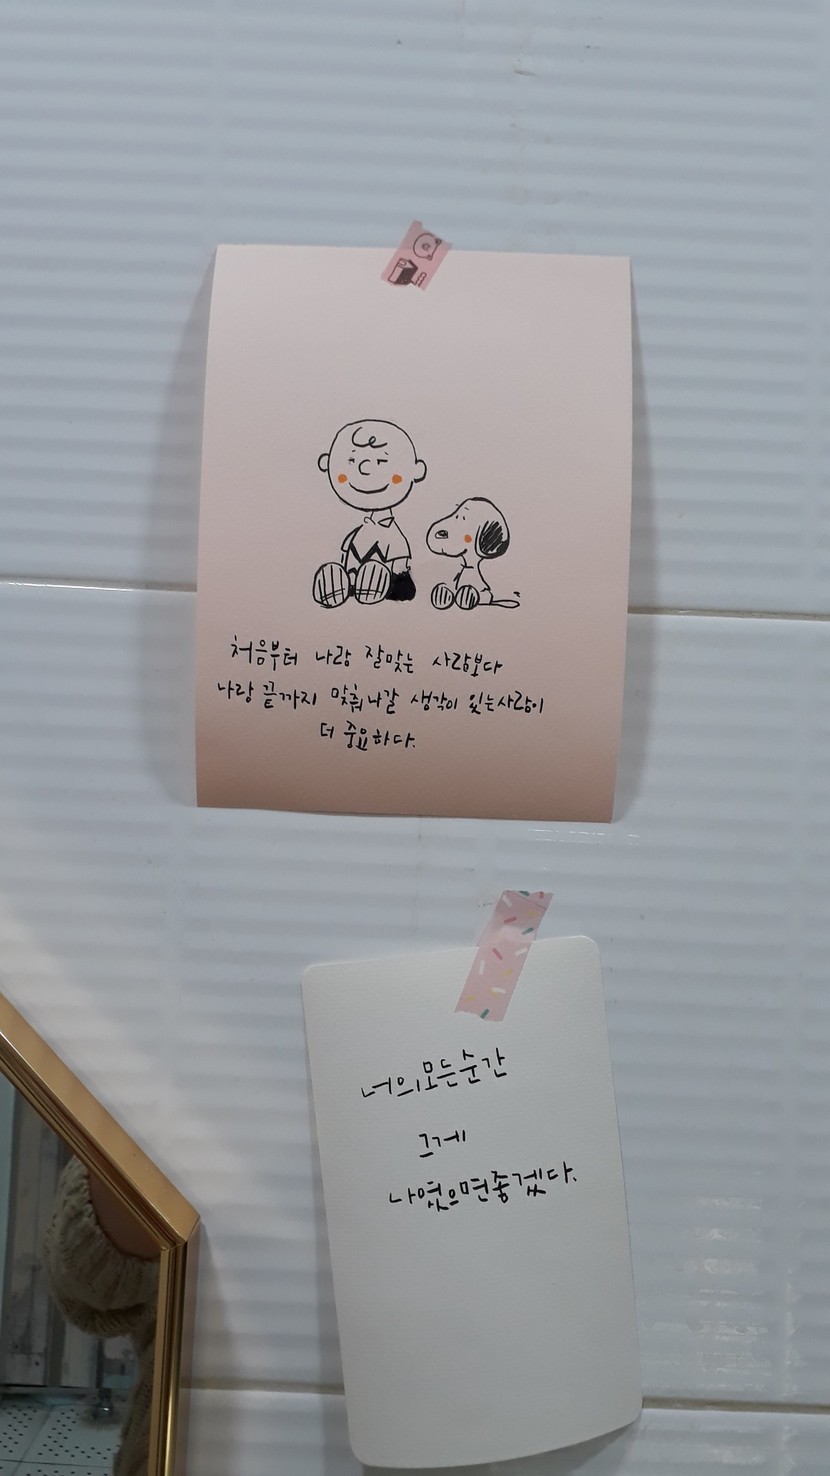 처음부터 나랑 잘맞는 사람보다
나랑 끝까지 맞춰나갈 생각이 있는사람이
더 중요하다.
너의모든순간
그게
나였으면좋겠다.